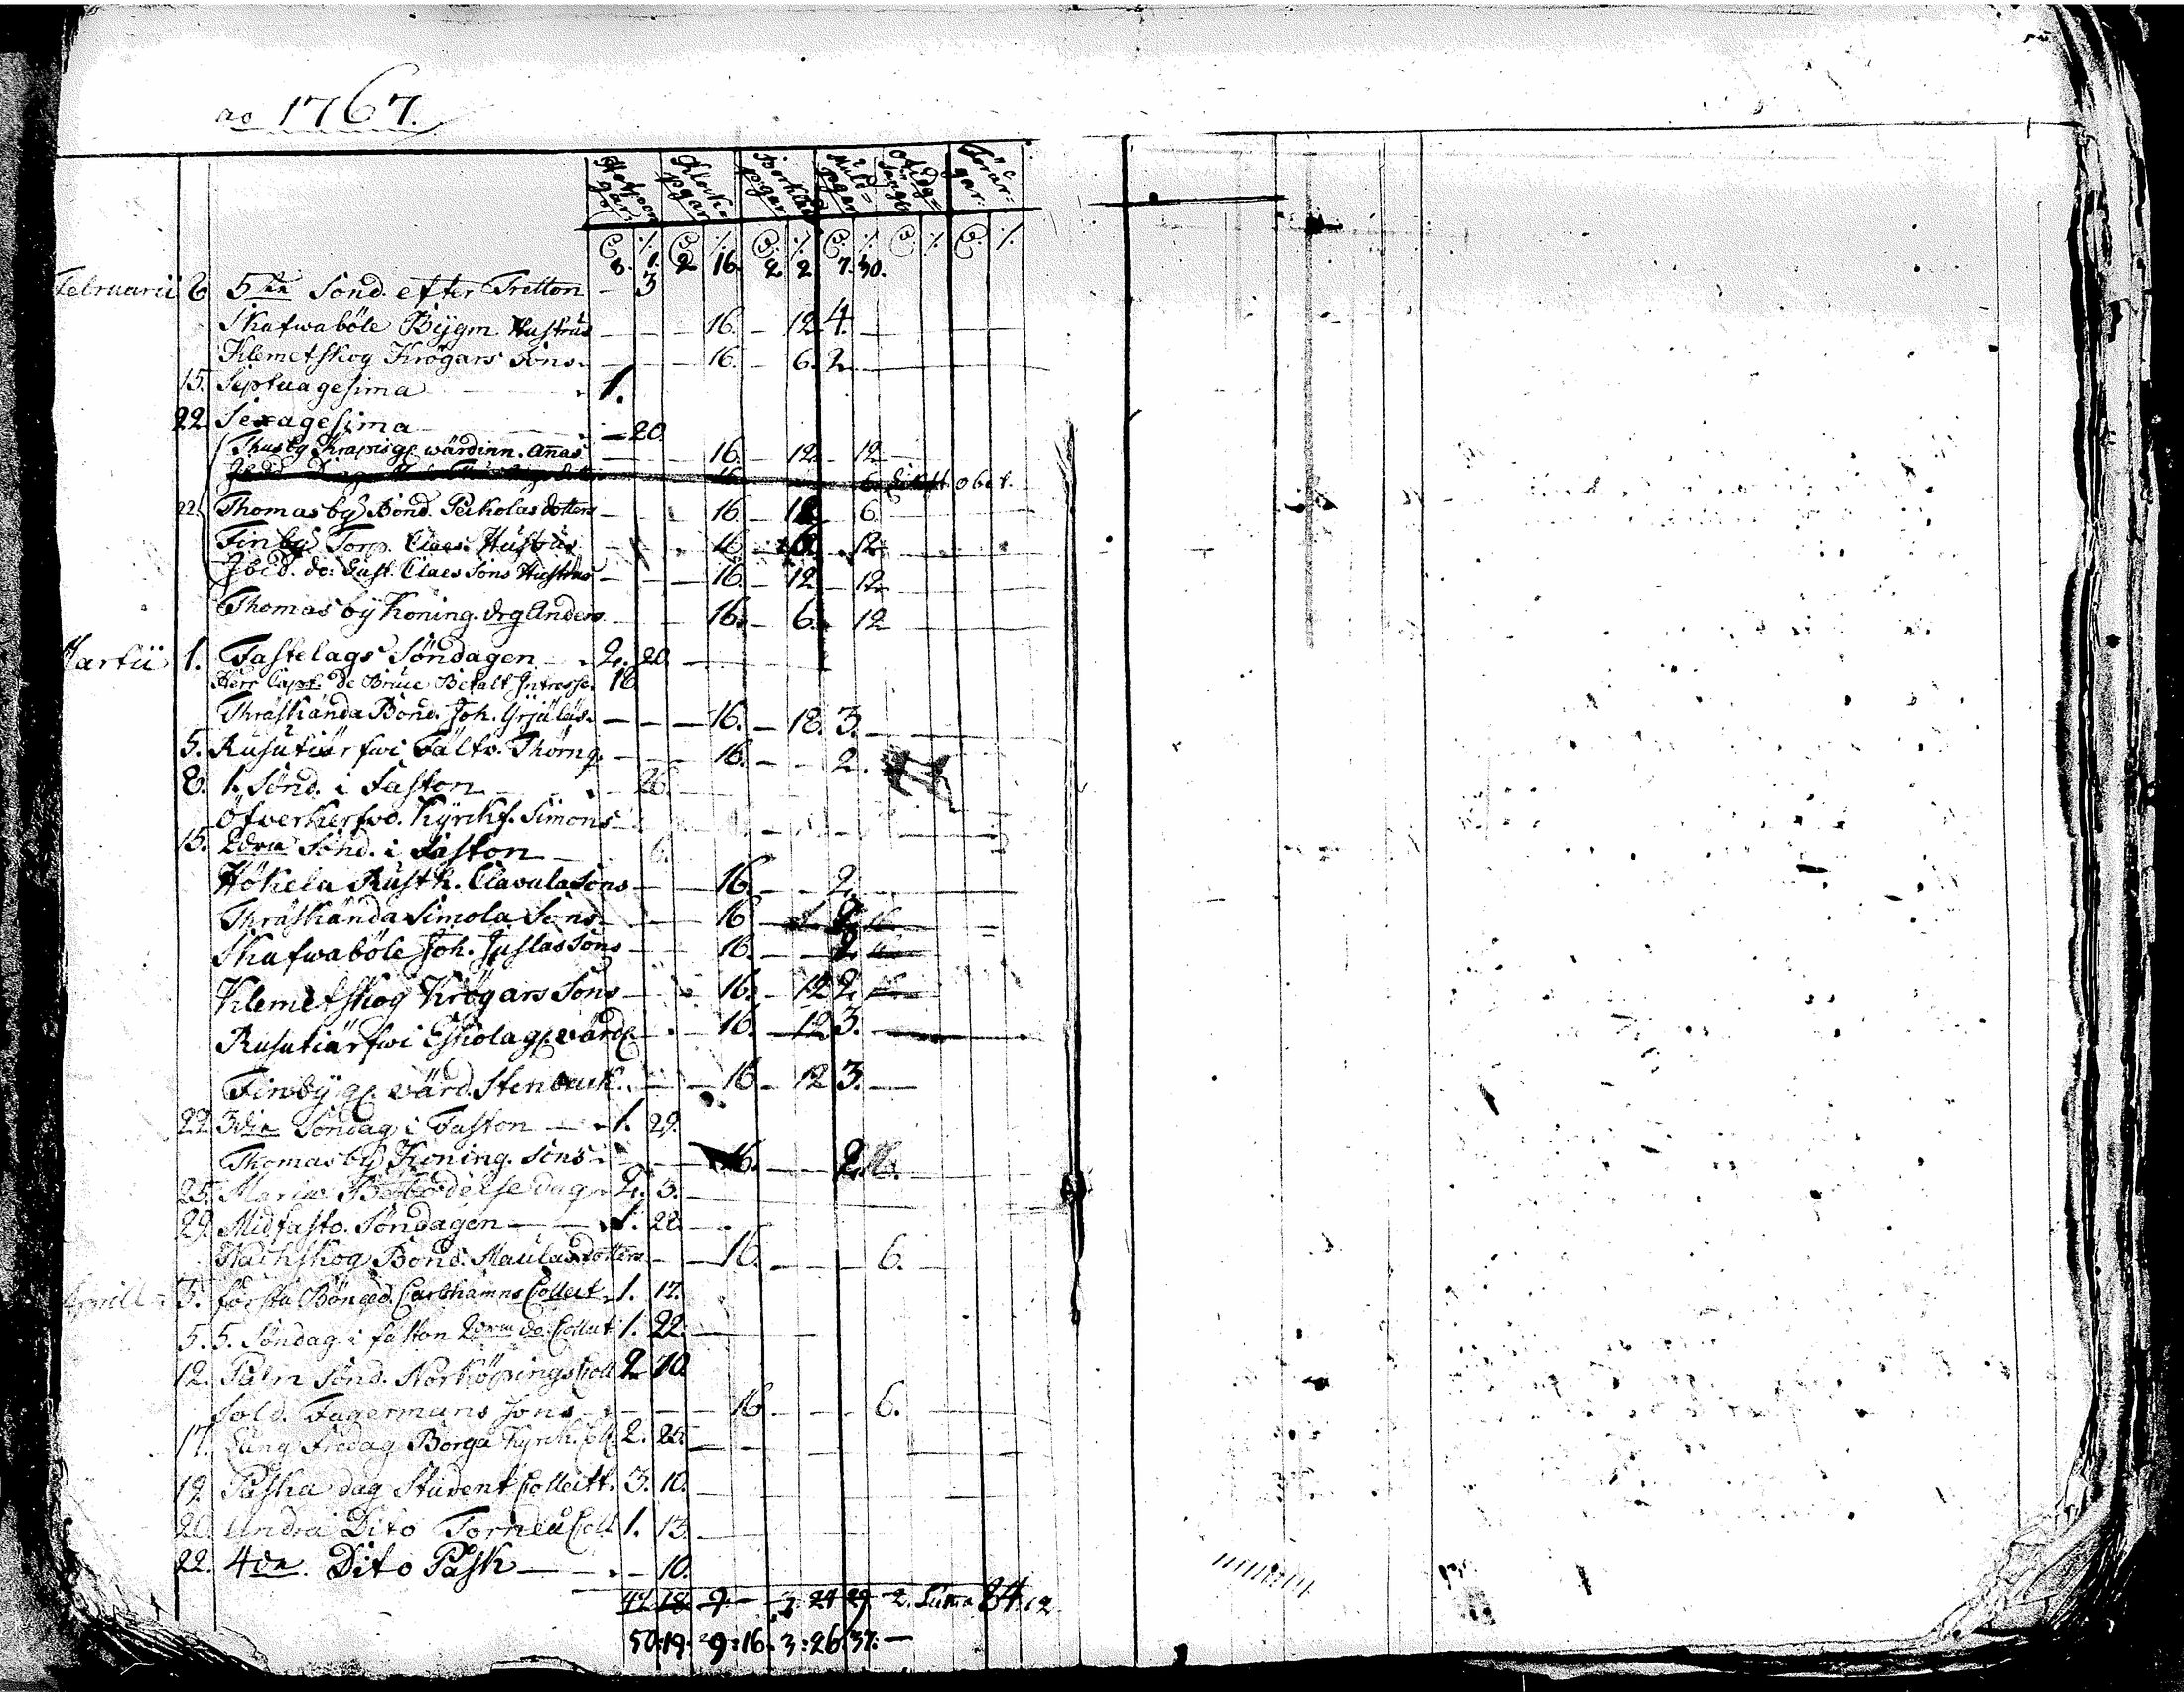 no 1767.
Håfpen gar. Klock= pgar Bårkläd pgar Mull= pgar Förär= gar.
8. 1. 2 16. 2. 2 7. 30.
Februarii 8 5te Sönd. efter Tretton — 3
Skafwaböle Bÿgm. Hustrus — — — 16. — 12. 4. —
Klemetskog Krögars Sons — — — 16. — 6. 2 —
15. Septuagesima 1.
22 Sexagesima — 20.
Thusby Krapis gl. wärdinn. Annas — — — 16. — 12. — 12
16. 6 obet.
22. Thomasby Bond. Peckolas dotters — — — 16. — 12 — 6
Finby Torp. Claes. Hustrus — — — 16. — 6. — 12
Ibid. do: Gust. Claes Sons Hustrus — — — 16. — 12 — 12
Thomasbÿ Koning. drg Anders — — — 16. — 6. — 12
Martii 1. Fastelags Söndagen — 2. 20. —
Herr Capt. de Bruce Betalt Intresse. 16
Thräskända Bond. Joh. Yrjäläs. — — — 16. — 18. 3. —
5. Rusutiärfwi Fältv. Thörnq. — — — 16. — — 2. —
8. 1. Sönd. i Faston — 26.
Öfverkerfwo. Kÿrckf. Simons
15. 2dra Sönd. i Faston — 6.
Hökela Rusth. Clavula Sons — — 16. — — 2. —
Thräskända Simola Sons — — 16 — — 2 16
Skafwaböle Joh. Juslas Sons — — 16. — — 2
Klemetskog Krögars Sons — — 16. — 12 2.
Rusutiärfwi Eskola gl. värd — — 16. — 12 3. —
Finbÿ gl. värd. Stenbeck. — — 16 — 12 3. —
22. 3die Söndag i Faston — 1. 29.
Thomasby Koning. Sons — — — 16. — — 2. 16.
25. Mariæ Bebådelse dag 2. 3. —
29. Midfasto. Söndagen — — 1. 22. —
Nackskog Bond. Maulas dotters — — 16. — — — 6. —
Aprill 3. första Böned. Carlshamns Collect 1. 17.
5. 5. Söndag i faston 2dra do. Collect 1. 22. —
12. Palm Sönd. Norköpings Coll 2 10.
Sold. Fagermans Sons — — — 16 — — — 6. —
17. Lång Fredag Borgå Kyrck. Coll. 2. 25. —
19. Påska dag Student Collectt. 3. 10. —
20. Andra Dito Torneå Coll 1. 13. —
22. 4de. Dito Påsk — — 10.
47 18. 9 — 3 24 29 — 2. Suma 84. 12
50: 19. 9: 16. 3: 26. 37. —